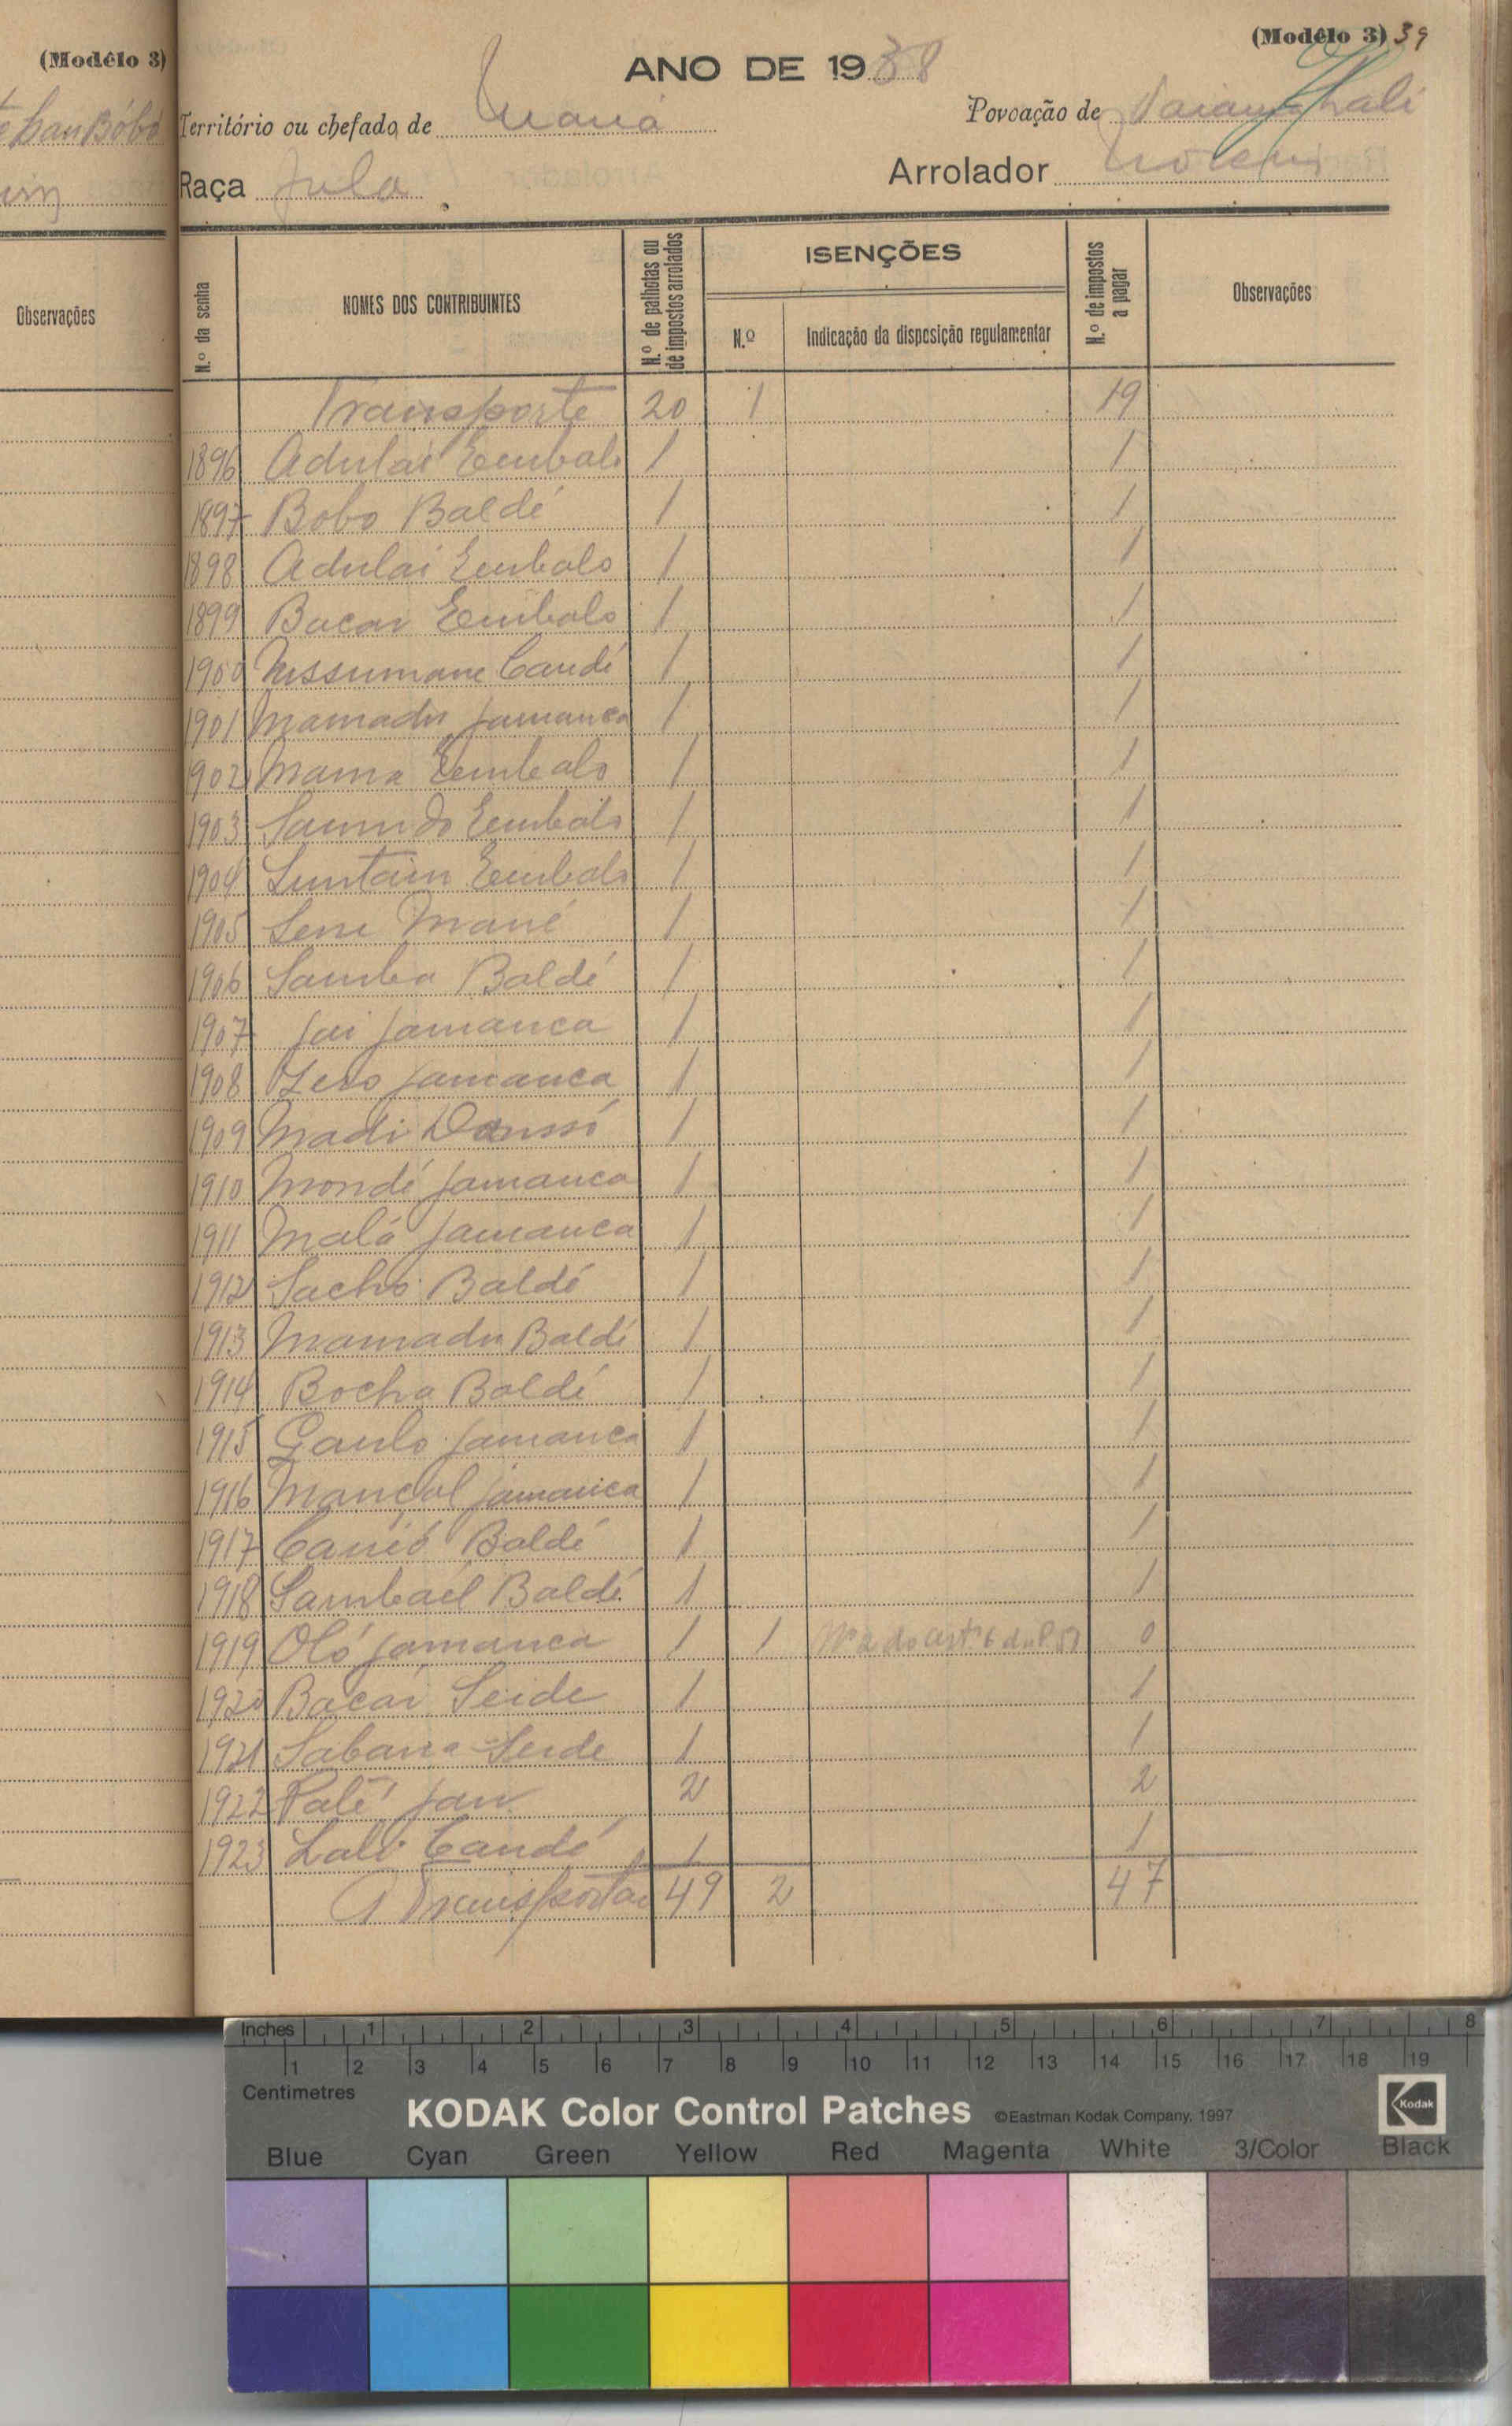 (Modêlo 3)
Observações
(Modêlo 3) 39
ANO DE 1938
Território ou chefado de Maná
Povoação de
Raça Fula
Arrolador
N.º da senha
NOMES DOS CONTRIBUINTES
N.º de palhotas ou de impostos arrolados
ISENÇÕES
N.º
Indicação da disposição regulamentar
N.º de impostos a pagar
Observações
Transporte 20 1 19
1896 Adulai Embalo 1 1
1897 Bobo Baldé 1 1
1898 Adulai Embalo 1 1
1899 Bacar Embalo 1 1
1900 Candé 1 1
1901 Mamadu Jamanca 1 1
1902 Mama Embalo 1 1
1903 Embalo 1 1
1904 Embalo 1 1
1905 Sene Mané 1 1
1906 Samba Baldé 1 1
1907 Jai Jamanca 1 1
1908 Jamanca 1 1
1909 Madi 1 1
1910 Mondé Jamanca 1 1
1911 Malá Jamanca 1 1
1912 Sacho Baldé 1 1
1913 Mamadu Baldé 1 1
1914 Bocha Baldé 1 1
1915 Jamanca 1 1
1916 Jamanca 1 1
1917 Baldé 1 1
1918 Sambaél Baldé 1 1
1919 Oló Jamanca 1 1 Nº 2 do artº 6 0
1920 Bacar Seide 1 1
1921 Seide 1 1
1922 Jau 2 2
1923 Lali Candé 1 1
A Transportar 49 2 47
Inches 1 2 3 4 5 6 7 8
1 2 3 4 5 6 7 8 9 10 11 12 13 14 15 16 17 18 19
Centimetres
KODAK Color Control Patches ©Eastman Kodak Company, 1997
Kodak
Blue Cyan Green Yellow Red Magenta White 3/Color Black